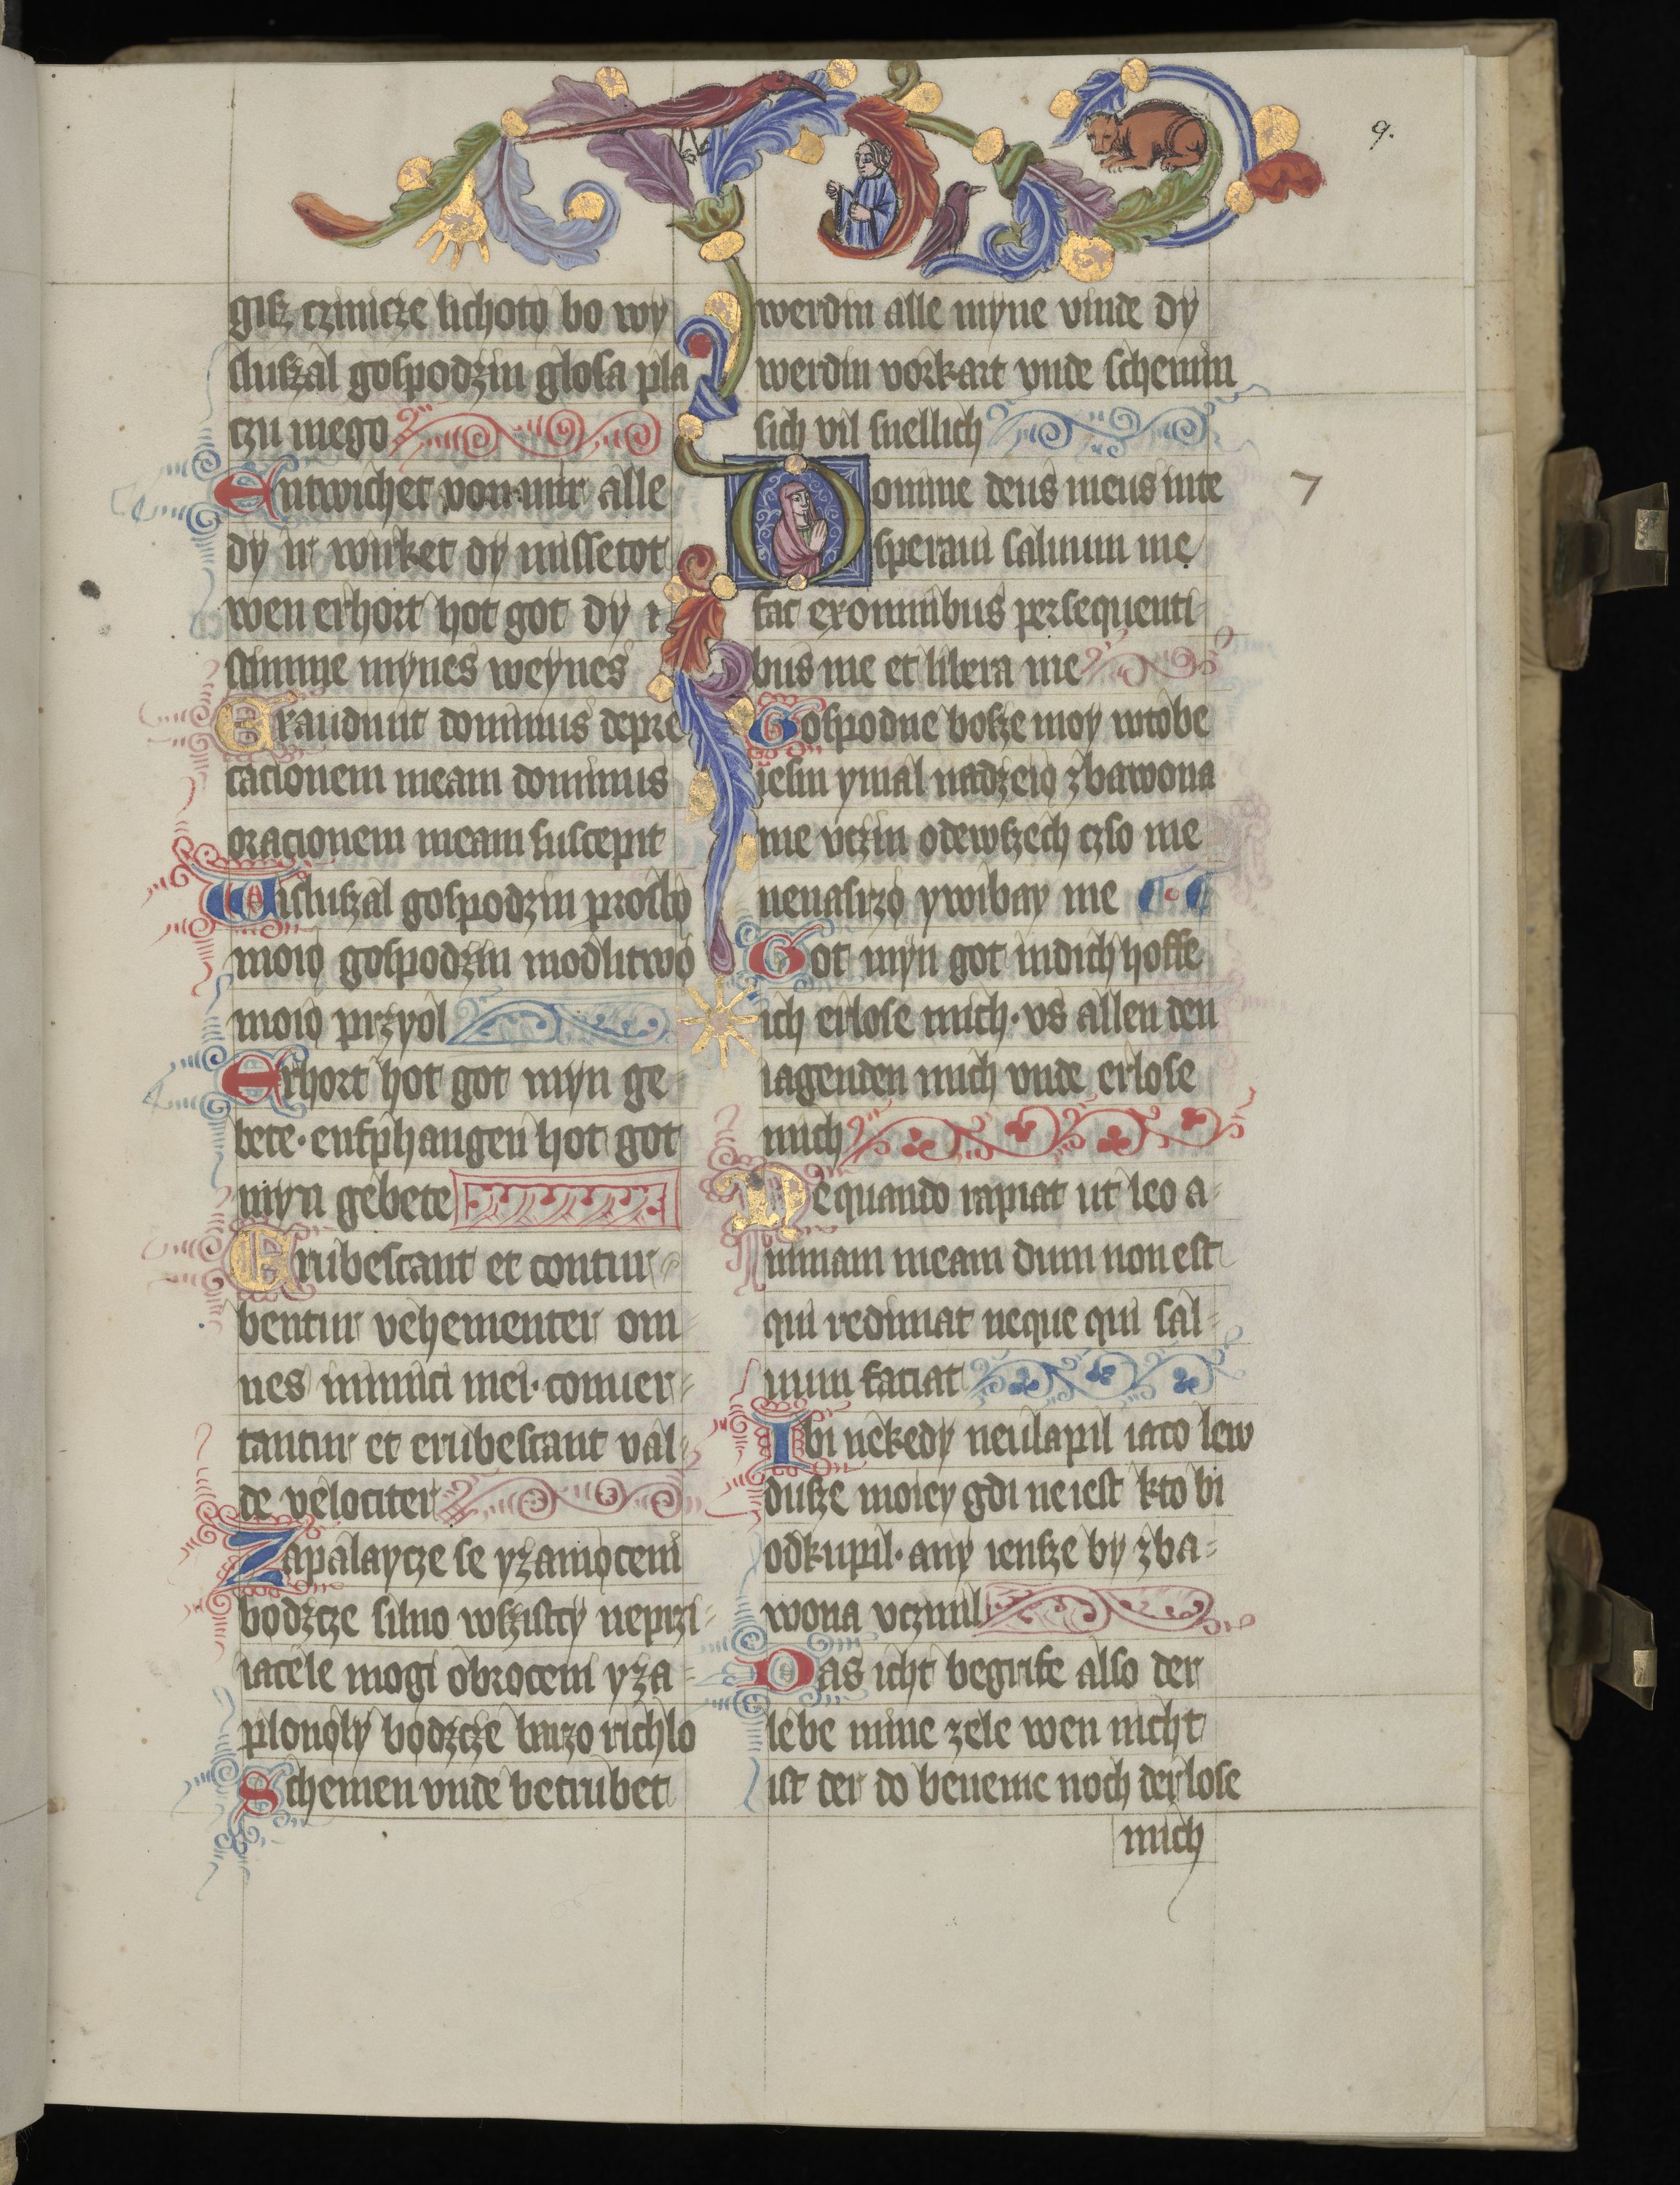 9.
gisz czinicze lichoto bo wy
sluszal gospodzin glosa pla
czu mego
Entwichet von mir alle
dy ir wirket dy missetot
wen erhort hot got dy
stimme mynes weynes
Exaudiuit dominus depre
cacionem meam dominus
oracionem meam suscepit
Wisluszal gospodzin prosbø
moiø gospodzin modlitwø
moiø przyøl
Erhort hot got myn ge
bete· enfphangen hot got
myn gebete
Erubescant et contur
bentur vehementer om
nes inimici mei· conuer
tantur et erubescant val
de velociter
Zapalaycze se yzamøceni
bødzcze silno wszistcy neprzi
iacele mogi obroceni yza
plonøly bødzcze barzo richlo
Schemen vnde betrubet
werdin alle myne vinde dy
werdin vorkart vnde schemin
sich vil snellich
Domine deus meus inte
speraui saluum me
fac exomnibus persequenti
bus me et libera me
7
Gospodne bosze moy wtobe
iesm ymal nadzeiø zbawona
me vczin odewszech czso me
nenasrzø ywibaw me
Got myn got indich hoffe
ich erlose mich· vs allen den
iagenden mich vnde erlose
mich
Nequando rapiat ut leo a
nimam meam dum non est
qui redimat neque qui sal
uum faciat
Ibi nekedy neulapil iaco lew
dusze moiey gdi neiest kto bi
odkupil· any iensze by zba
wona vczinil
Das icht begrife also der
lebe mine zele wen nicht
ist der do beneme noch derlose
mich